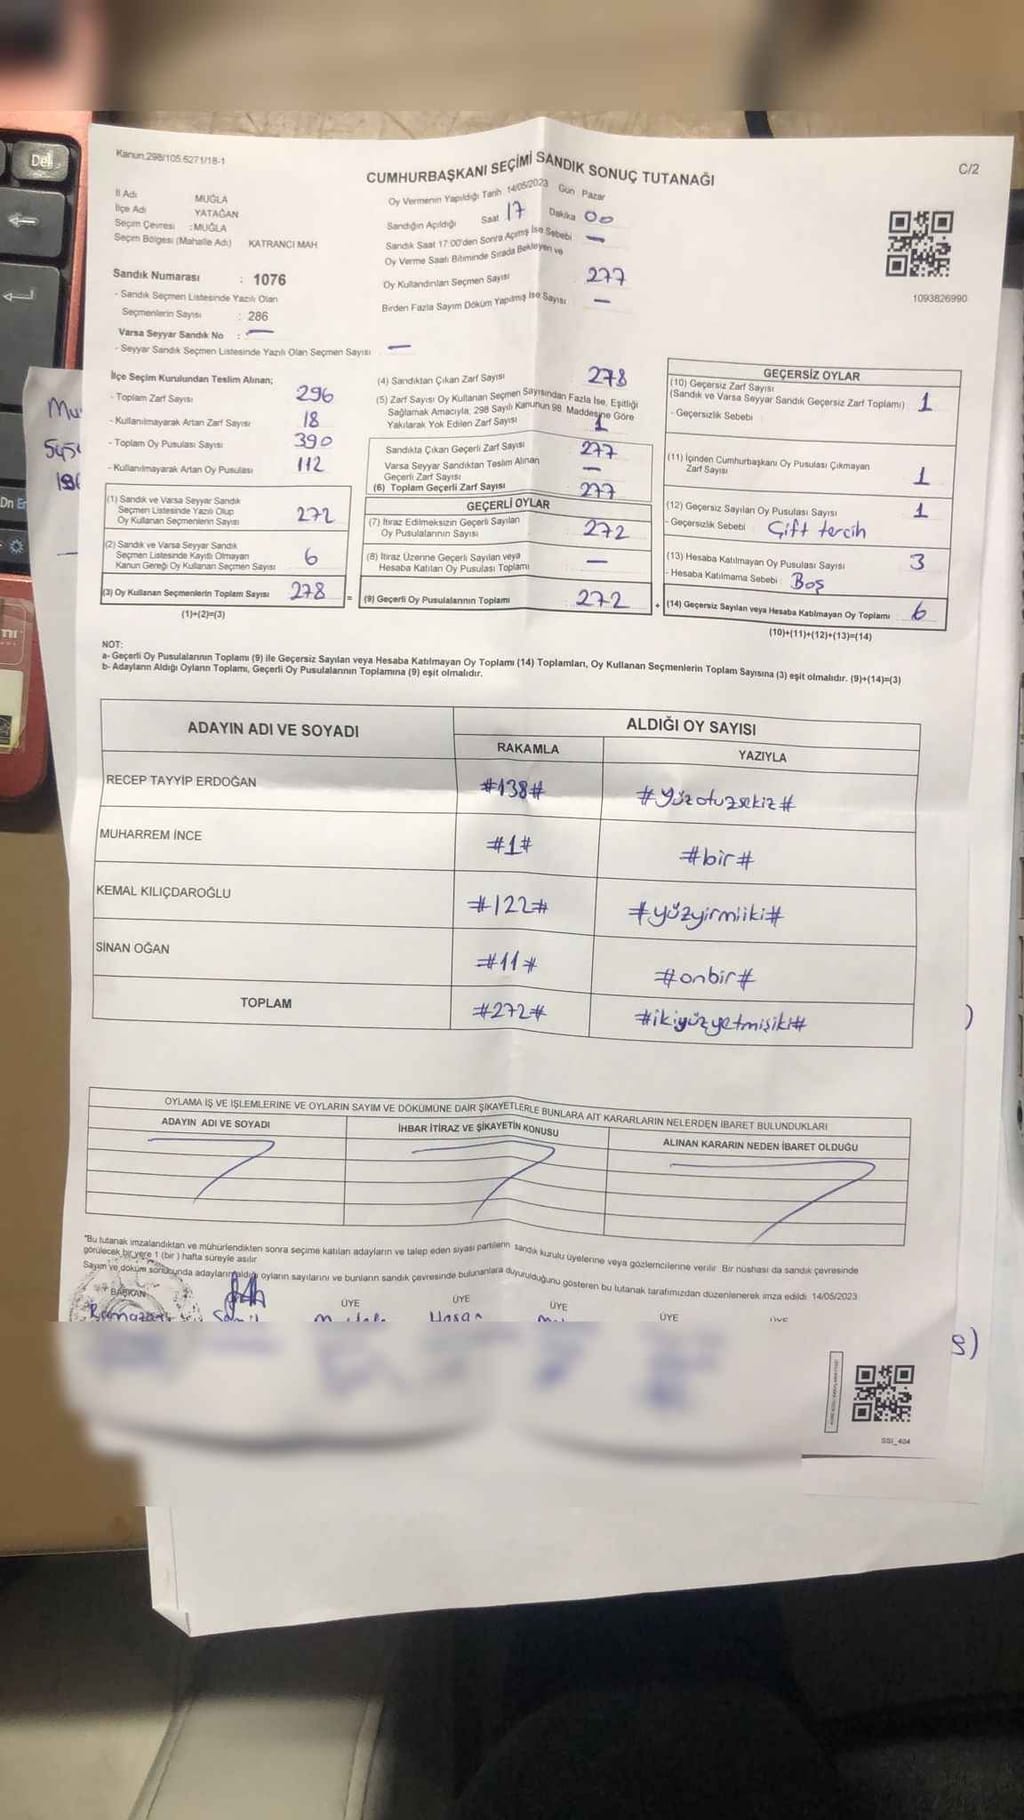 Del
Kanun.298/105.6271/18-1
C/2
CUMHURBAŞKANI SEÇİMİ SANDIK SONUÇ TUTANAĞI
İl Adı MUĞLA
İlçe Adı YATAĞAN
Seçim Çevresi :MUĞLA
Seçim Bölgesi (Mahalle Adı) KATRANCI MAH
Sandık Numarası : 1076
- Sandık Seçmen Listesinde Yazılı Olan
Seçmenlerin Sayısı : 286
Varsa Seyyar Sandık No : —
- Seyyar Sandık Seçmen Listesinde Yazılı Olan Seçmen Sayısı —
Oy Vermenin Yapıldığı Tarih 14/05/2023 Gün Pazar
Sandığın Açıldığı Saat 17 Dakika 00
Sandık Saat 17:00'den Sonra Açımış İse Sebebi —
Oy Verme Saati Bitiminde Sırada Bekleyen ve
Oy Kullandırılan Seçmen Sayısı 277
Birden Fazla Sayım Döküm Yapılmış İse Sayısı —
1093826990
İlçe Seçim Kurulundan Teslim Alınan;
- Toplam Zarf Sayısı 296
- Kullanılmayarak Artan Zarf Sayısı 18
- Toplam Oy Pusulası Sayısı 390
- Kullanılmayarak Artan Oy Pusulası 112
(1) Sandık ve Varsa Seyyar Sandık
Seçmen Listesinde Yazılı Olup
Oy Kullanan Seçmenlerin Sayısı 272
(2) Sandık ve Varsa Seyyar Sandık
Seçmen Listesinde Kayıtlı Olmayan
Kanun Gereği Oy Kullanan Seçmen Sayısı 6
(3) Oy Kullanan Seçmenlerin Toplam Sayısı 278
(1)+(2)=(3)
(4) Sandıktan Çıkan Zarf Sayısı 278
(5) Zarf Sayısı Oy Kullanan Seçmen Sayısından Fazla İse, Eşitliği
Sağlamak Amacıyla, 298 Sayılı Kanunun 98. Maddesine Göre
Yakılarak Yok Edilen Zarf Sayısı 1
Sandıkta Çıkan Geçerli Zarf Sayısı 277
Varsa Seyyar Sandıktan Teslim Alınan
Geçerli Zarf Sayısı —
(6) Toplam Geçerli Zarf Sayısı 277
GEÇERLİ OYLAR
(7) İtiraz Edilmeksizin Geçerli Sayılan
Oy Pusulalarının Sayısı 272
(8) İtiraz Üzerine Geçerli Sayılan veya
Hesaba Katılan Oy Pusulası Toplamı —
= (9) Geçerli Oy Pusulalarının Toplamı 272 +
GEÇERSİZ OYLAR
(10) Geçersiz Zarf Sayısı
(Sandık ve Varsa Seyyar Sandık Geçersiz Zarf Toplamı) 1
- Geçersizlik Sebebi
(11) İçinden Cumhurbaşkanı Oy Pusulası Çıkmayan
Zarf Sayısı 1
(12) Geçersiz Sayılan Oy Pusulası Sayısı 1
- Geçersizlik Sebebi Çift tercih
(13) Hesaba Katılmayan Oy Pusulası Sayısı 3
- Hesaba Katılmama Sebebi Boş
(14) Geçersiz Sayılan veya Hesaba Katılmayan Oy Toplamı 6
(10)+(11)+(12)+(13)=(14)
NOT:
a- Geçerli Oy Pusulalarının Toplamı (9) ile Geçersiz Sayılan veya Hesaba Katılmayan Oy Toplamı (14) Toplamları, Oy Kullanan Seçmenlerin Toplam Sayısına (3) eşit olmalıdır. (9)+(14)=(3)
b- Adayların Aldığı Oyların Toplamı, Geçerli Oy Pusulalarının Toplamına (9) eşit olmalıdır.
ADAYIN ADI VE SOYADI ALDIĞI OY SAYISI
RAKAMLA YAZIYLA
RECEP TAYYİP ERDOĞAN #138# #yüzotuzsekiz#
MUHARREM İNCE #1# #bir#
KEMAL KILIÇDAROĞLU #122# #yüzyirmiiki#
SİNAN OĞAN #11# #onbir#
TOPLAM #272# #ikiyüzyetmişiki#
OYLAMA İŞ VE İŞLEMLERİNE VE OYLARIN SAYIM VE DÖKÜMÜNE DAİR ŞİKAYETLERLE BUNLARA AİT KARARLARIN NELERDEN İBARET BULUNDUKLARI
ADAYIN ADI VE SOYADI İHBAR İTİRAZ VE ŞİKAYETİN KONUSU ALINAN KARARIN NEDEN İBARET OLDUĞU
*Bu tutanak imzalandıktan ve mühürlendikten sonra seçime katılan adayların ve talep eden siyasi partilerin sandık kurulu üyelerine veya gözlemcilerine verilir. Bir nüshası da sandık çevresinde
görülecek bir yere 1 (bir) hafta süreyle asılır
Sayım ve döküm sonucunda adayların aldığı oyların sayılarını ve bunların sandık çevresinde bulunanlara duyurulduğunu gösteren bu tutanak tarafımızdan düzenlenerek imza edildi. 14/05/2023
BAŞKAN ÜYE ÜYE ÜYE ÜYE
Ramazan Hasan
SSI_404